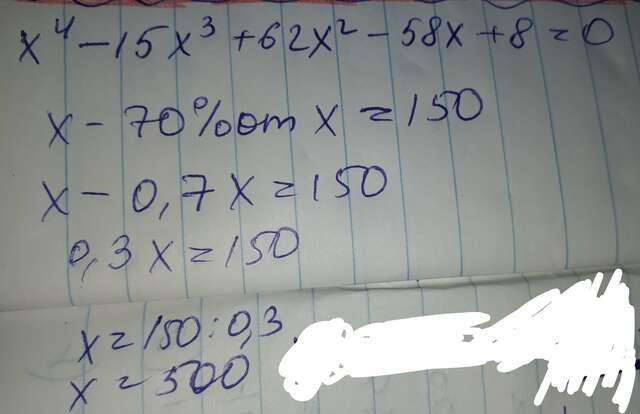 x⁴ - 15x³ + 62x² - 58x + 8 = 0
x - 70% от x = 150
x - 0,7x = 150
0,3x = 150
x = 150 : 0,3
x = 500